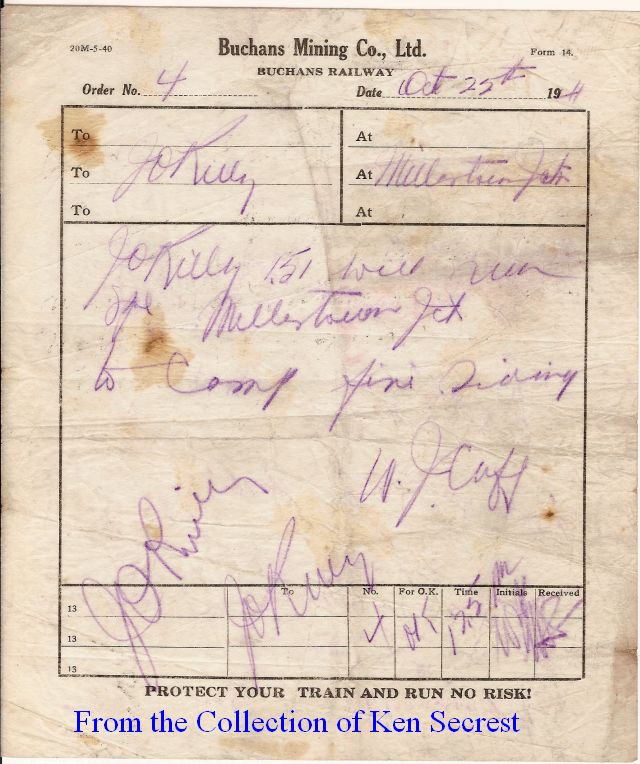 20M-5-40
Buchans Mining Co., Ltd.
Form 14.
BUCHANS RAILWAY
Order No. 4
Date Oct 25th 194
To
At
To JO Rilly
At Millertown Jct
To
At
JO Rilly 151 will run
Spl Millertown Jct
to Camp five Siding
W. J. Cuff
JO Rilly
JO Rilly
To No. For O.K. Time Initials Received
13
13 4 OK
13
PROTECT YOUR TRAIN AND RUN NO RISK!
From the Collection of Ken Secrest